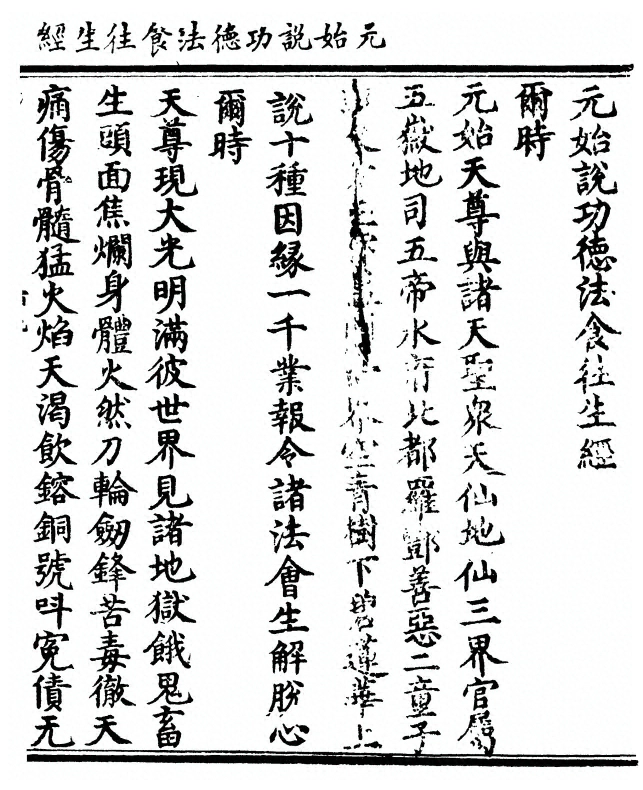 元始說功德法食往生經
元始說功德法食往生經
爾時
元始天尊與諸天聖衆天仙地仙三界官屬
五嶽地司五帝水府北都羅酆善惡二童子
青樹下 蓮華上
說十種因緣一千業報令諸法會生解脫心
爾時
天尊現大光明滿彼世界見諸地獄餓鬼畜
生頭面焦爛身體火然刀輪劒鋒苦毒徹天
痛傷骨髓猛火焰天渴飲鎔銅號呌寃債无